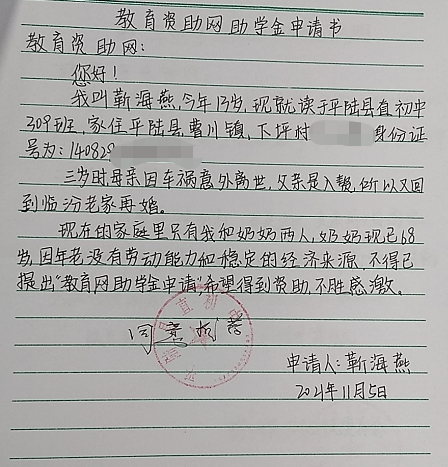 教育资助网助学金申请书
教育资助网：
您好！
我叫靳海燕，今年13岁，现就读于平陆县直初中
309班，家住平陆县曹川镇，下坪村 身份证
号为：140829
三岁时母亲因车祸意外离世，父亲是入赘，所以又回
到临汾老家再婚。
现在的家庭里只有我和奶奶两人，奶奶现已68
岁，因年老没有劳动能力和稳定的经济来源，不得已
提出“教育网助学金申请”希望得到资助，不胜感激。
同意
申请人：靳海燕
2021年11月5日